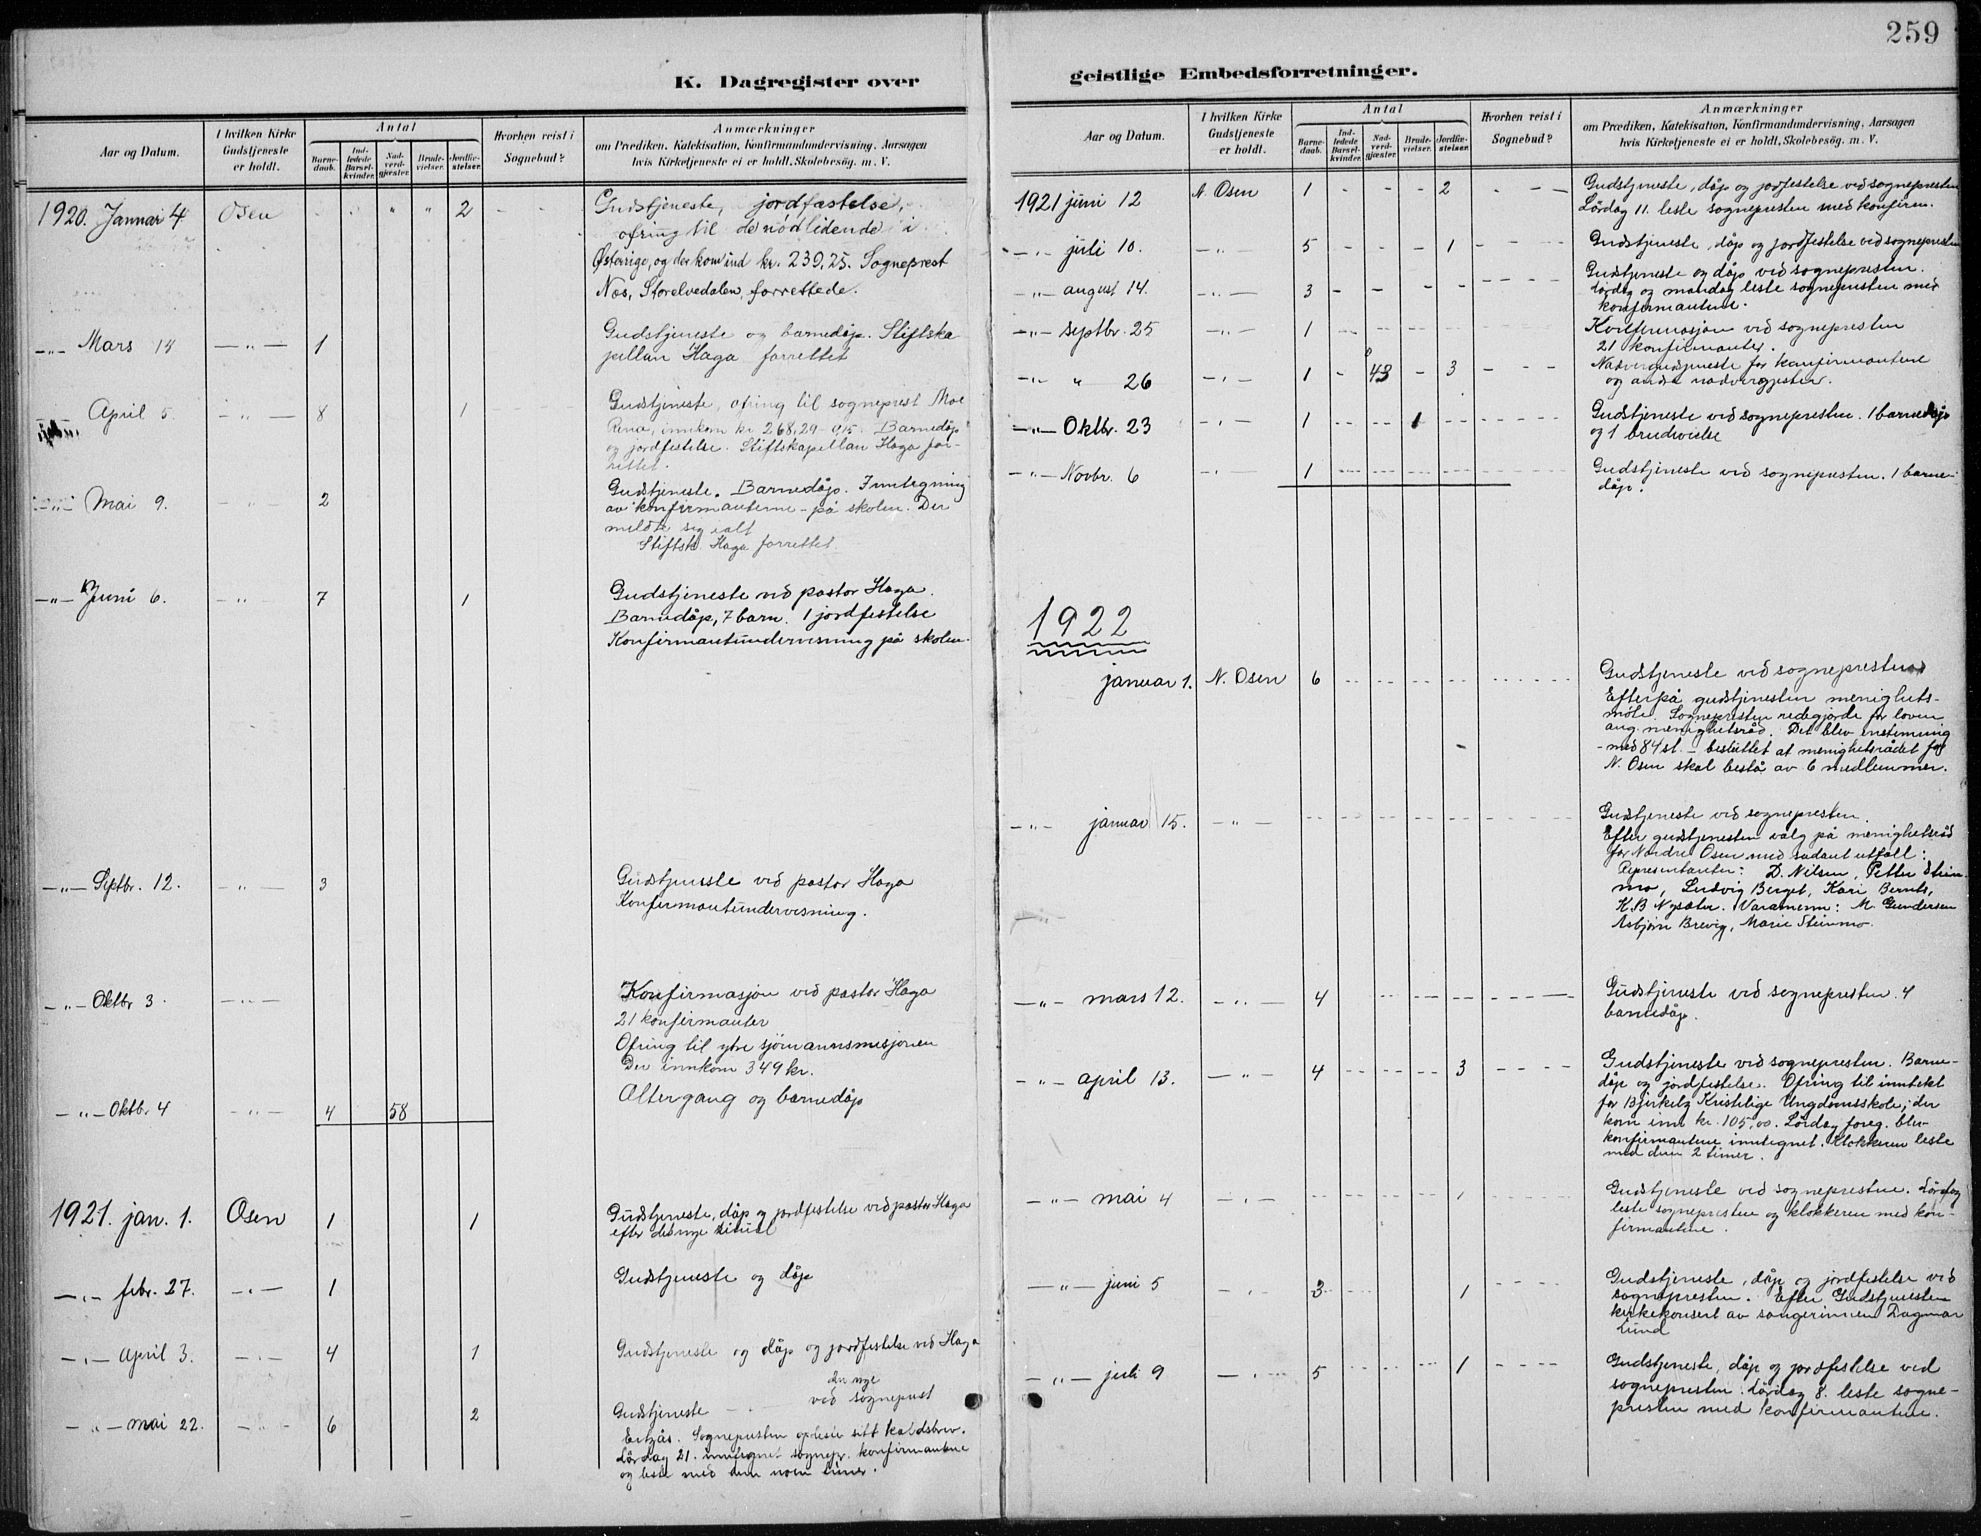 259
K. Dagregister over
geistlige Embedsforretninger.
Aar og Datum.
I hvilken Kirke
Gudstjeneste
er holdt.
Antal
Barne-
daab.
Ind-
ledede
Barsel-
kvinder.
Nad-
verd-
gjæster.
Brude-
vielser.
Jordfæ-
stelser.
Hvorhen reist i
Sognebud?
Anmærkninger
om Prædiken, Katekisation, Konfirmandundervisning, Aarsagen
hvis Kirketjeneste ei er holdt, Skolebesøg. m. V.
1920. Januar 4 Osen " " 2 Gudstjeneste, jordfæstelse,
ofring til de nødlidende i
Østerrige, og der kom ind kr. 239,25. Sogneprest
Næs, Storelvedalen, forrettede.
-"- Mars 14 -"- 1 Gudstjeneste og barnedåp. Stiftska
pellan Haga forrettet
April 5. -"- 8 1 Gudstjeneste, ofring til sogneprest Moe
Rena, innkom kr 268,29. Barnedåp
og jordfestelse. Stiftskapellan Haga for-
rettet.
-"- Mai 9. -"- 2 Gudstjeneste. Barnedåp. Inntegning
av konfirmanterne - på skolen. Der
meldte sig ialt
Stiftsk. Haga forrettet
-"- Juni 6. -"- 7 1 Gudstjeneste ved pastor Haga.
Barnedåp, 7 barn. 1 jordfestelse
Konfirmantundervisning på skolen.
-"- Septbr. 12. -"- 3 Gudstjeneste vid pastor Haga
Konfirmantundervisning.
-"- Oktbr 3 -"- Konfirmasjon vid pastor Haga
21 konfirmanter
Ofring til ytre sjömannsmisjonen
Der innkom 349 kr.
-"- Oktb. 4 -"- 4 58 Altergang og barnedåp
1921. jan. 1. Osen 1 1 Gudstjeneste, dåp og jordfestelse ved pastor Haga
efter det nye ritual
-"- febr. 27. -"- 1 Gudstjeneste og dåp
-"- April 3. -"- 4 1 Gudstjeneste og dåp og jordfestelse ved Haga
den nye
ved sogneprest
-"- mai 22. -"- 6 2 Gudstjeneste
Sognepresten oplesie sitt kaldsbrev.
Lördag 21. inntegnet sognepr. konfirmantene
og leste med dem noen timer.
Aar og Datum.
I hvilken Kirke
Gudstjeneste
er holdt.
Antal
Barne-
daab.
Ind-
ledede
Barsel-
kvinder.
Nad-
verd-
gjæster.
Brude-
vielser.
Jordfæ-
stelser.
Hvorhen reist i
Sognebud?
Anmærkninger
om Prædiken, Katekisation, Konfirmandundervisning, Aarsagen
hvis Kirketjeneste ei er holdt, Skolebesøg. m. V.
1921 juni 12 N. Osen 1 - - - 2 - - - Gudstjeneste, dåp og jordfestelse ved sognepresten
Lördag 11. leste sognepresten med konfirm.
-"- juli 10. -"- 5 - - - 1 - - - Gudstjeneste, dåp og jordfestelse ved sognepresten
-"- august 14. -"- 3 - - - - - - - Gudstjeneste og dåp ved sognepresten.
Lördag og mandag leste sognepresten med
konfirmantene.
-"- septbr. 25 -"- 1 Konfirmasjon vid sognepresten
21 konfirmanter.
-"- " 26 -"- 1 - 43 - 3 - - - Nadvergudstjeneste for konfirmantene
og andre nadvergjester.
-"- Oktbr. 23 -"- 1 1 Gudstjeneste ved sognepresten. 1 barnedåp
og 1 brudvielse
-"- Novbr. 6 -"- 1 Gudstjeneste ved sognepresten. 1 barne-
dåp.
1922
januar 1. N. Osen 6 Gudstjeneste vid sognepresten
Efterpå gudstjenesten menighets-
möte. Sognepresten redegjorde for loven
ang. menighetsråd. Det blev enstemmig
- med 84 st. - besluttet at menighetsrådet for
N. Osen skal bestå av 6 medlemmer.
-"- januar 15. -"- Gudstjeneste ved sognepresten.
Efter gudstjenesten valg på menighetsråd
for Nordre Osen med sådant utfall:
Representanter: D. Nilsen, Petter Stein-
mo, Ludvig Berget, Kari Bernts,
H.B Nysæter. Varamenn: M. Gundersen
Asbjörn Brevig, Marie Steinmo.
-"- mars 12. -"- 4 Gudstjeneste vid sognepresten. 4
barnedåp.
-"- april 13. -"- 4 3 Gudstjeneste vid sognepresten. Barne-
dåp og jordfestelse. Ofring til inntekt
for Bjerkely Kristelige Ungdomsskole, der
kom inn kr. 105,00. Lördag foreg. blev
konfirmantene inntegnet. Klokkeren leste
med dem 2 timer.
-"- mai 4 -"- 1 Gudstjeneste ved sognepresten. Lördag
leste sognepresten og klokkeren med kon-
firmantene.
-"- juni 5 -"- 3 1 Gudstjeneste, dåp og jordfestelse ved
sognepresten. Efter Gudstjenesten
kirkekonsert av sangerinnen Dagmar
Lund
-"- juli 9 -"- 5 1 Gudstjeneste, dåp og jordfestelse ved
sognepresten. Lördag 8. leste sogne-
presten med konfirmantene.